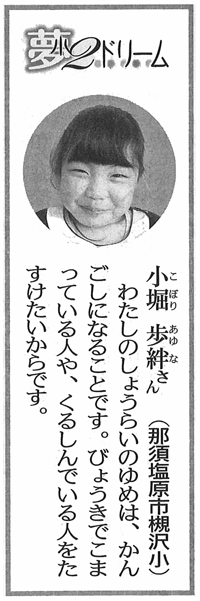 夢小2ドリーム
小堀 歩絆さん
こぼり あゆな
（那須塩原市槻沢小）
わたしのしょうらいのゆめは、かん
ごしになることです。びょうきでこま
っている人や、くるしんでいる人をた
すけたいからです。